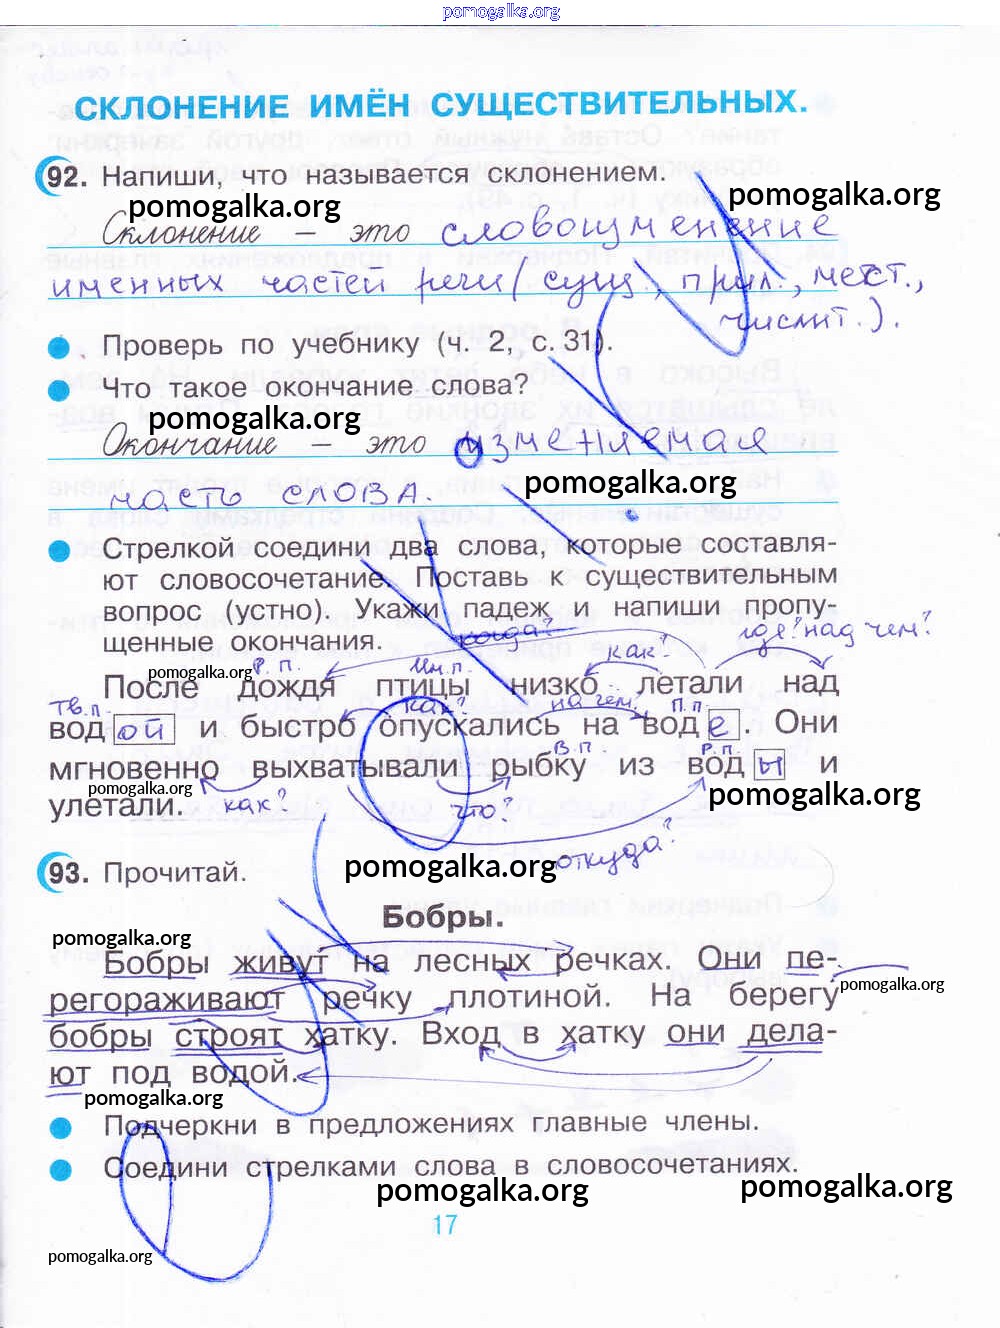 pomogalka.org
СКЛОНЕНИЕ ИМЁН СУЩЕСТВИТЕЛЬНЫХ.
92. Напиши, что называется склонением.
pomogalka.org pomogalka.org
Склонение – это словоизменение
именных частей речи (сущ., прил., мест.,
числит.).
Проверь по учебнику (ч. 2, с. 31).
Что такое окончание слова?
pomogalka.org
Окончание – это изменяемая
pomogalka.org
часть слова.
Стрелкой соедини два слова, которые составля-
ют словосочетание. Поставь к существительным
вопрос (устно). Укажи падеж и напиши пропу-
щенные окончания.
когда? как? где? над чем?
pomogalka.org
Р. п. Им. п.
После дождя птицы низко летали над
Тв. п. как? на чем? П. п.
водой и быстро опускались на воде. Они
В. п. Р. п
мгновенно выхватывали рыбку из воды и
pomogalka.org pomogalka.org
улетали. как? что?
откуда?
93. Прочитай.
pomogalka.org
Бобры.
pomogalka.org
Бобры живут на лесных речках. Они пе-
pomogalka.org
регораживают речку плотиной. На берегу
бобры строят хатку. Вход в хатку они дела-
ют под водой.
pomogalka.org
Подчеркни в предложениях главные члены.
Соедини стрелками слова в словосочетаниях.
pomogalka.org pomogalka.org
17
pomogalka.org